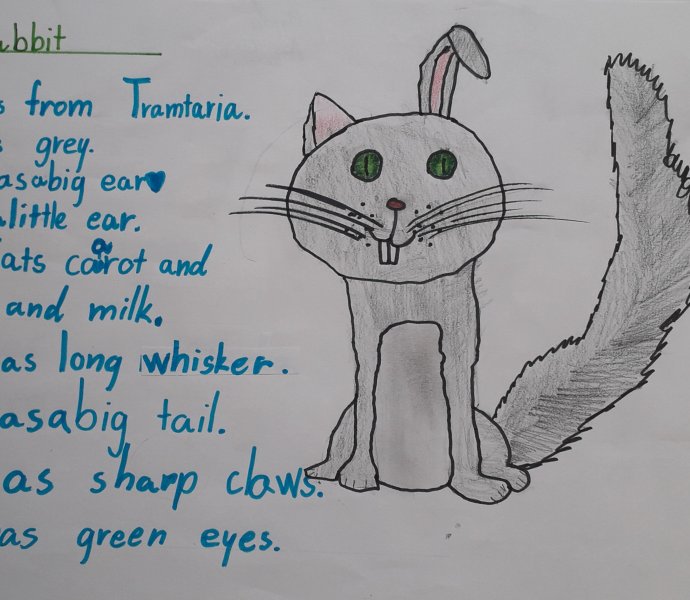 abbit
s from Tramtaria.
s grey.
asabig ear
little ear.
ats carot and
and milk.
as long whisker.
asabig tail.
as sharp claws.
as green eyes.